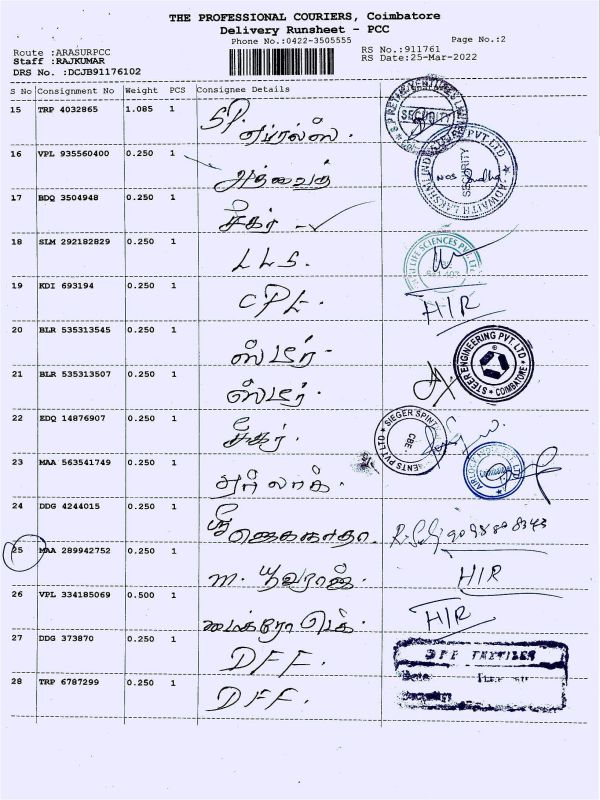 THE PROFESSIONAL COURIERS, Coimbatore
Delivery Runsheet - PCC
Phone No.:0422-3505555
Page No.:2
Route :ARASURPCC
Staff :RAJKUMAR
DRS No. :DCJB91176102
RS No.:911761
RS Date:25-Mar-2022
S No Consignment No Weight PCS Consignee Details
15 TRP 4032865 1.085 1 SP.
SECURITY
16 VPL 935560400 0.250 1 அத்வைத்
ADWAITH LAKSHMI INDUS PVT LTD SECURITY
17 BDQ 3504948 0.250 1 சீகர்
18 SLM 292182829 0.250 1 LLS.
LIFE SCIENCES PVT. LTD
19 KDI 693194 0.250 1 CPL. H/R
20 BLR 535313545 0.250 1 ஸ்டீர்
STEER ENGINEERING PVT. LTD COIMBATORE
21 BLR 535313507 0.250 1 ஸ்டீர்.
22 EDQ 14876907 0.250 1 சீகர்.
SIEGER SPINT ENTS PVT LTD CBE
23 MAA 563541749 0.250 1 ஏர்லாக்.
24 DDG 4244015 0.250 1 ஸ்ரீ
9098808343
25 MAA 289942752 0.250 1 m. யுவராஜ். H/R
26 VPL 334185069 0.500 1 மைக்ரோ டெக். H/R
27 DDG 373870 0.250 1 DFF.
DFF TEXTILES
Date
28 TRP 6787299 0.250 1 DFF.